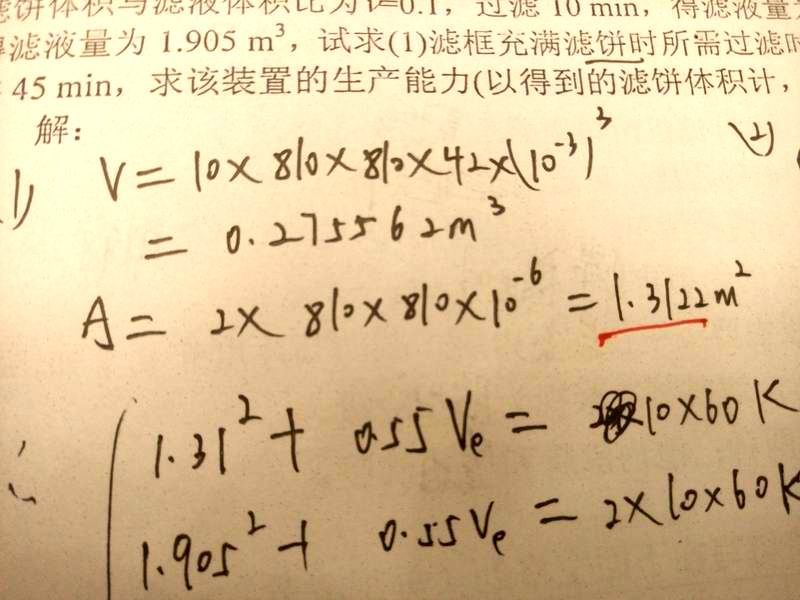 饼体积与滤液体积比为ν=0.1，过滤 10 min，得滤液量
滤液量为 1.905 m³，试求(1)滤框充满滤饼时所需过滤时
45 min，求该装置的生产能力(以得到的滤饼体积计，
解：
1) V = 10 × 810 × 810 × 42 × (10⁻³)³ (2)
= 0.275562 m³
A = 2 × 810 × 810 × 10⁻⁶ = 1.3122 m²
∴ 1.31² + 0.55 Ve = 10 × 60 K
1.905² + 0.55 Ve = 2 × 10 × 60 K